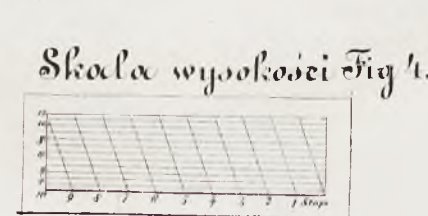 Skala wysokości Fig 4.
9 8 7 6 5 4 3 2 1 Stopa